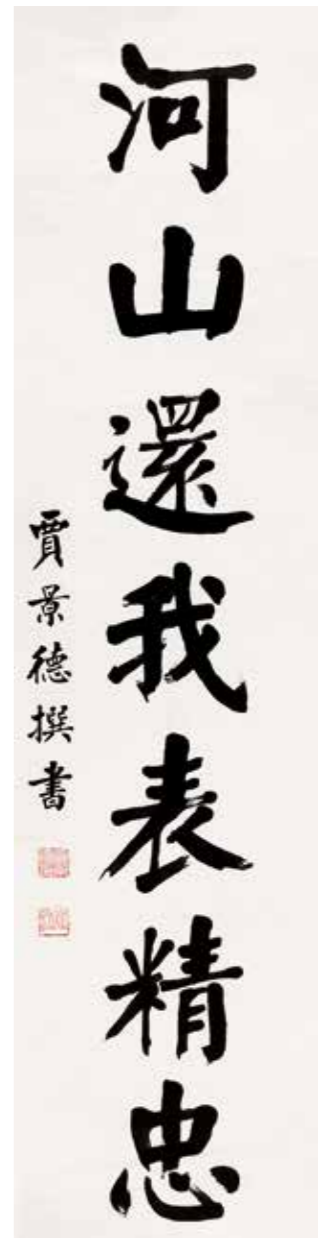 河山還我表精忠
賈景德撰書